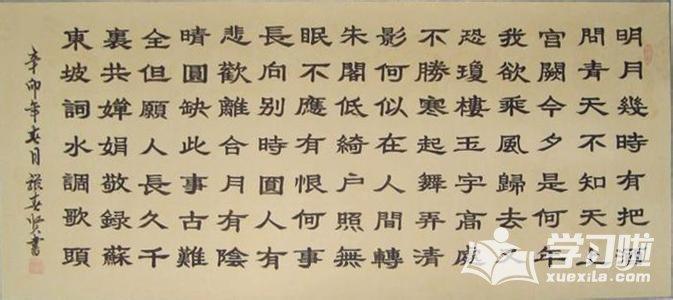 明月幾時有把酒
問青天不知天上
宮闕今夕是何年
我欲乘風歸去又
恐瓊樓玉宇高處
不勝寒起舞弄清
影何似在人間轉
朱閣低綺户照無
眠不應有恨何事
長向别時圓人有
悲歡離合月有陰
晴圓缺此事古難
全但願人長久千
裏共嬋娟敬録蘇
東坡詞水調歌頭
辛卯年春月張春賢書
学习啦
xuexila.com